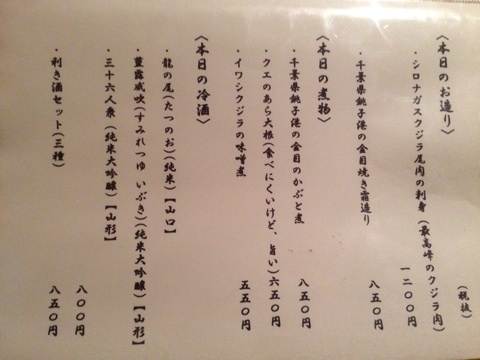 (税抜)
〈本日のお造り〉
・シロナガスクジラ尾肉の刺身(最高峰のクジラ肉) 一二〇〇円
・千葉県銚子港の金目焼き霜造り 八五〇円
〈本日の煮物〉
・千葉県銚子港の金目のかぶと煮 八五〇円
・クエのあら大根(食べにくいけど、旨い) 六五〇円
・イワシクジラの味噌煮 五五〇円
〈本日の冷酒〉
・龍の尾(たつのお)(純米)【山口】
・菫露威吹(すみれつゆ いぶき)(純米大吟醸)【山形】
・三十六人衆(純米大吟醸)【山形】 八〇〇円
・利き酒セット(三種) 八五〇円